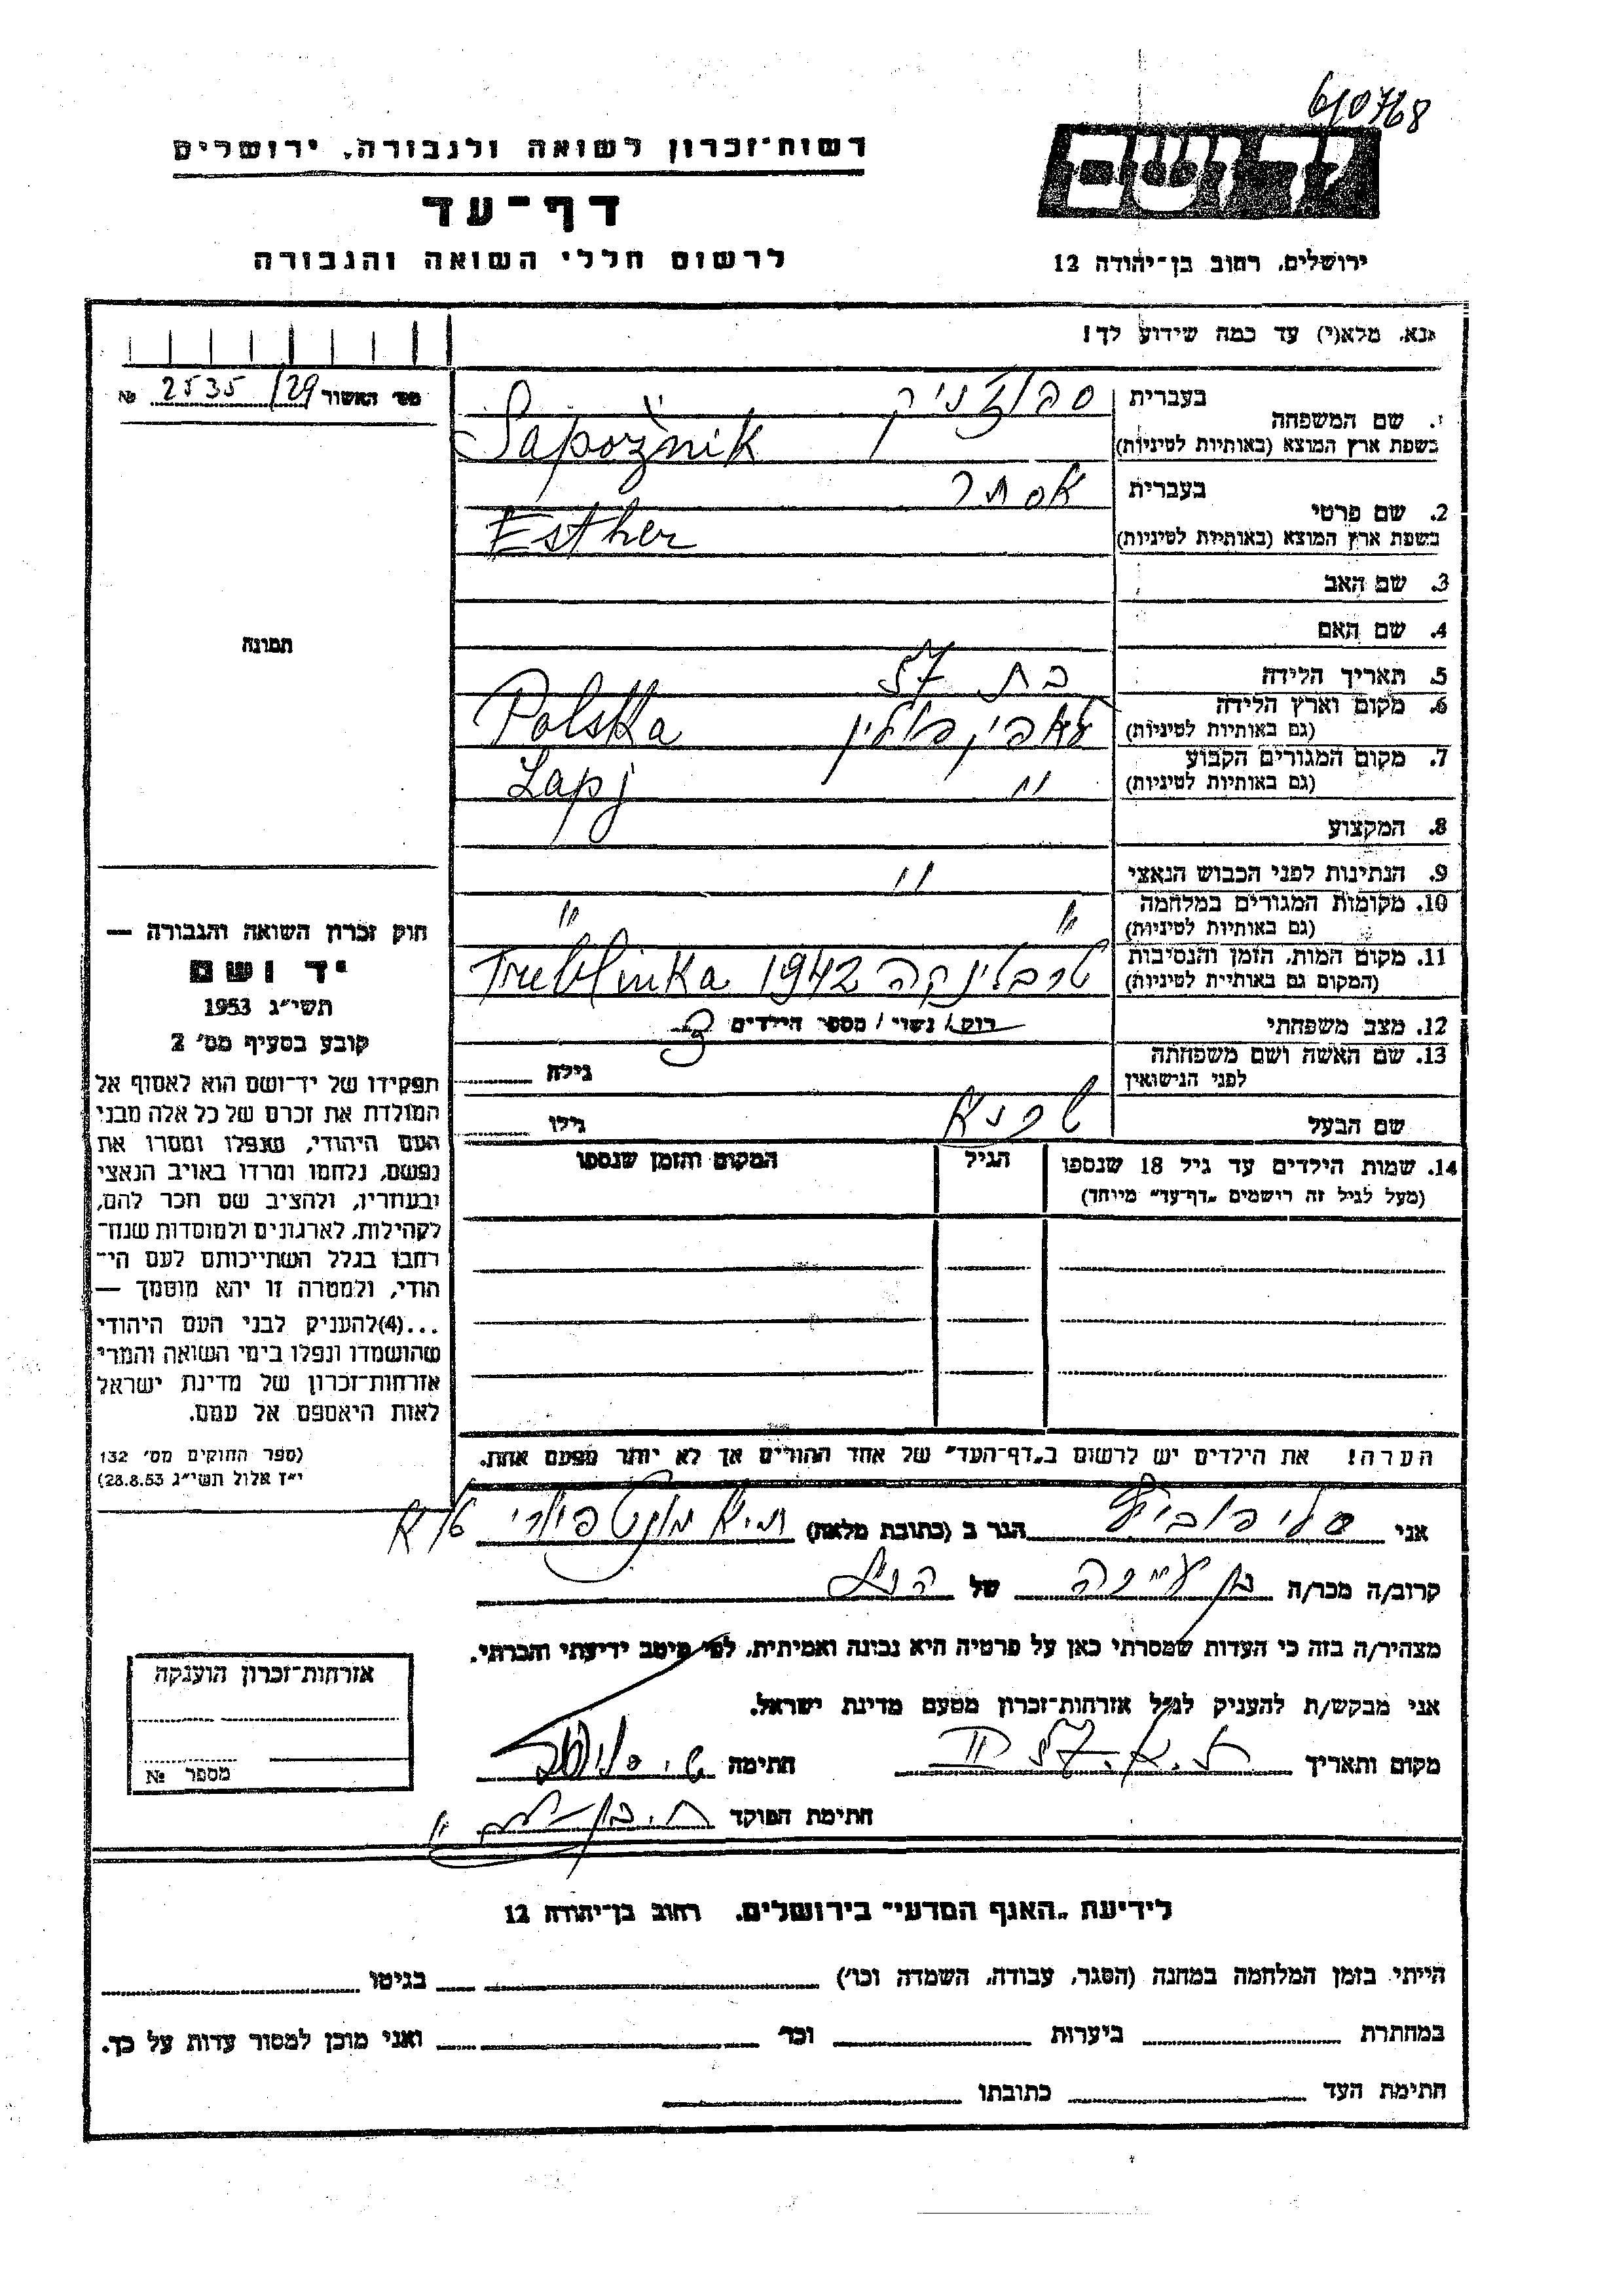 6/0768
רשות-זכרון לשואה ולגבורה, ירושלים
דף-עד
לרשום חללי השואה והגבורה
יד ושם
ירושלים, רחוב בן-יהודה 12
אנא, מלא(י) עד כמה שידוע לך!
מס' האשור 2535/29 №
תמונה
1. שם המשפחה
בעברית ספוזניק
בשפת ארץ המוצא (באותיות לטיניות) Sapožnik
2. שם פרטי
בעברית אסתר
בשפת ארץ המוצא (באותיות לטיניות) Esther
3. שם האב
4. שם האם
5. תאריך הלידה בת 57
6. מקום וארץ הלידה
(גם באותיות לטיניות) פולין Polska
7. מקום המגורים הקבוע
(גם באותיות לטיניות) " Lapj
8. המקצוע
9. הנתינות לפני הכבוש הנאצי "
10. מקומות המגורים במלחמה
(גם באותיות לטיניות) " "
11. מקום המות, הזמן והנסיבות
(המקום גם באותיות לטיניות) טרבלינקה 1942 Treblinka
12. מצב משפחתי רוק/ נשוי/ מספר הילדים 3
13. שם האשה ושם משפחתה
לפני הנישואין
גילה
שם הבעל
גילו
14. שמות הילדים עד גיל 18 שנספו
(מעל לגיל זה רושמים "דף-עד" מיוחד)
הגיל
המקום והזמן שנספו
הערה! את הילדים יש לרשום ב"דף-העד" של אחד ההורים אך לא יותר מפעם אחת.
חוק זכרון השואה והגבורה —
יד ושם
תשי"ג 1953
קובע בסעיף מס' 2
תפקידו של יד-ושם הוא לאסוף אל
המולדת את זכרם של כל אלה מבני
העם היהודי, שנפלו ומסרו את
נפשם, נלחמו ומרדו באויב הנאצי
ובעוזריו, ולהציב שם וזכר להם,
לקהילות, לארגונים ולמוסדות שנח-
רבו בגלל השתייכותם לעם הי-
הודי, ולמטרה זו יהא מוסמך —
...(4)להעניק לבני העם היהודי
שהושמדו ונפלו בימי השואה והמרי
אזרחות-זכרון של מדינת ישראל
לאות היאספם אל עמם.
(ספר החוקים מס' 132
י"ז אלול תשי"ג 28.8.53)
אני הגר ב (כתובת מלאה) ת"א מונטפיורי
קרוב/ה מכר/ה של הנ"ל
מצהיר/ה בזה כי העדות שמסרתי כאן על פרטיה היא נכונה ואמיתית, לפי מיטב ידיעתי והכרתי.
אני מבקש/ת להעניק לנ"ל אזרחות-זכרון מטעם מדינת ישראל.
מקום ותאריך חתימה
חתימת הפוקד
אזרחות-זכרון הוענקה
מספר №
לידיעת "האגף המדעי" בירושלים, רחוב בן-יהודה 12
הייתי בזמן המלחמה במחנה (הסגר, עבודה, השמדה וכו') בגיטו
במחתרת ביערות וכו' ואני מוכן למסור עדות על כך.
חתימת העד כתובתו